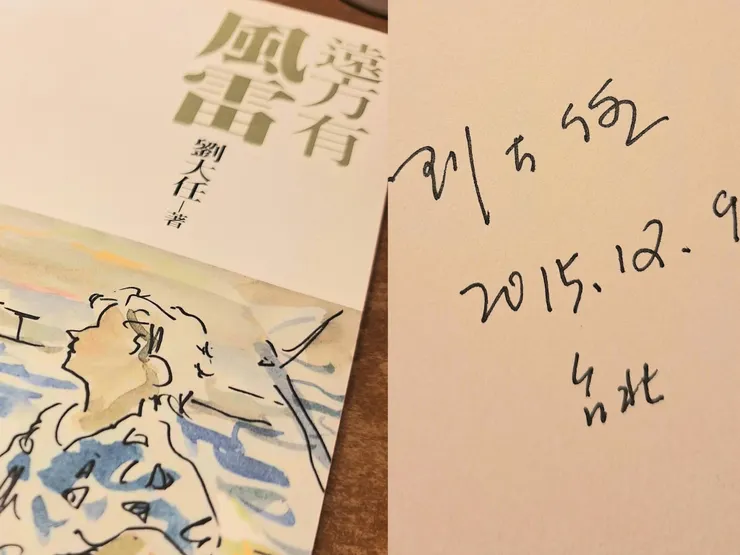 遠方有
風雷
劉大任—著
刘大任
2015.12.9
台北